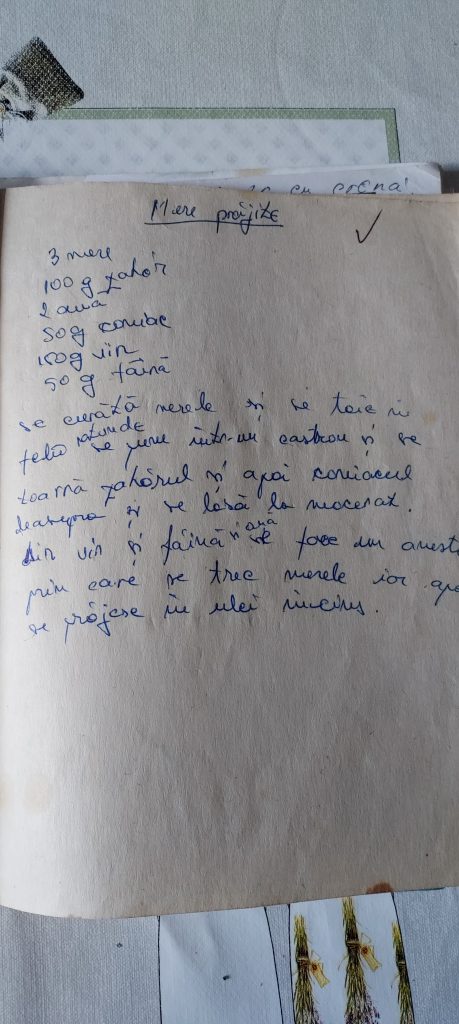 cu crema
Mere prăjite
3 mere
100 g zahăr
2 ouă
50 g coniac
150 g vin
50 g făină
se curăță merele și se taie în
felii rotunde se pune într-un castron și se
toarnă zahărul și apoi coniacul
deasupra și se lasă la macerat.
din vin și făină și ouă se face un amest
prin care se trec merele iar apo
se prăjesc în ulei încins.